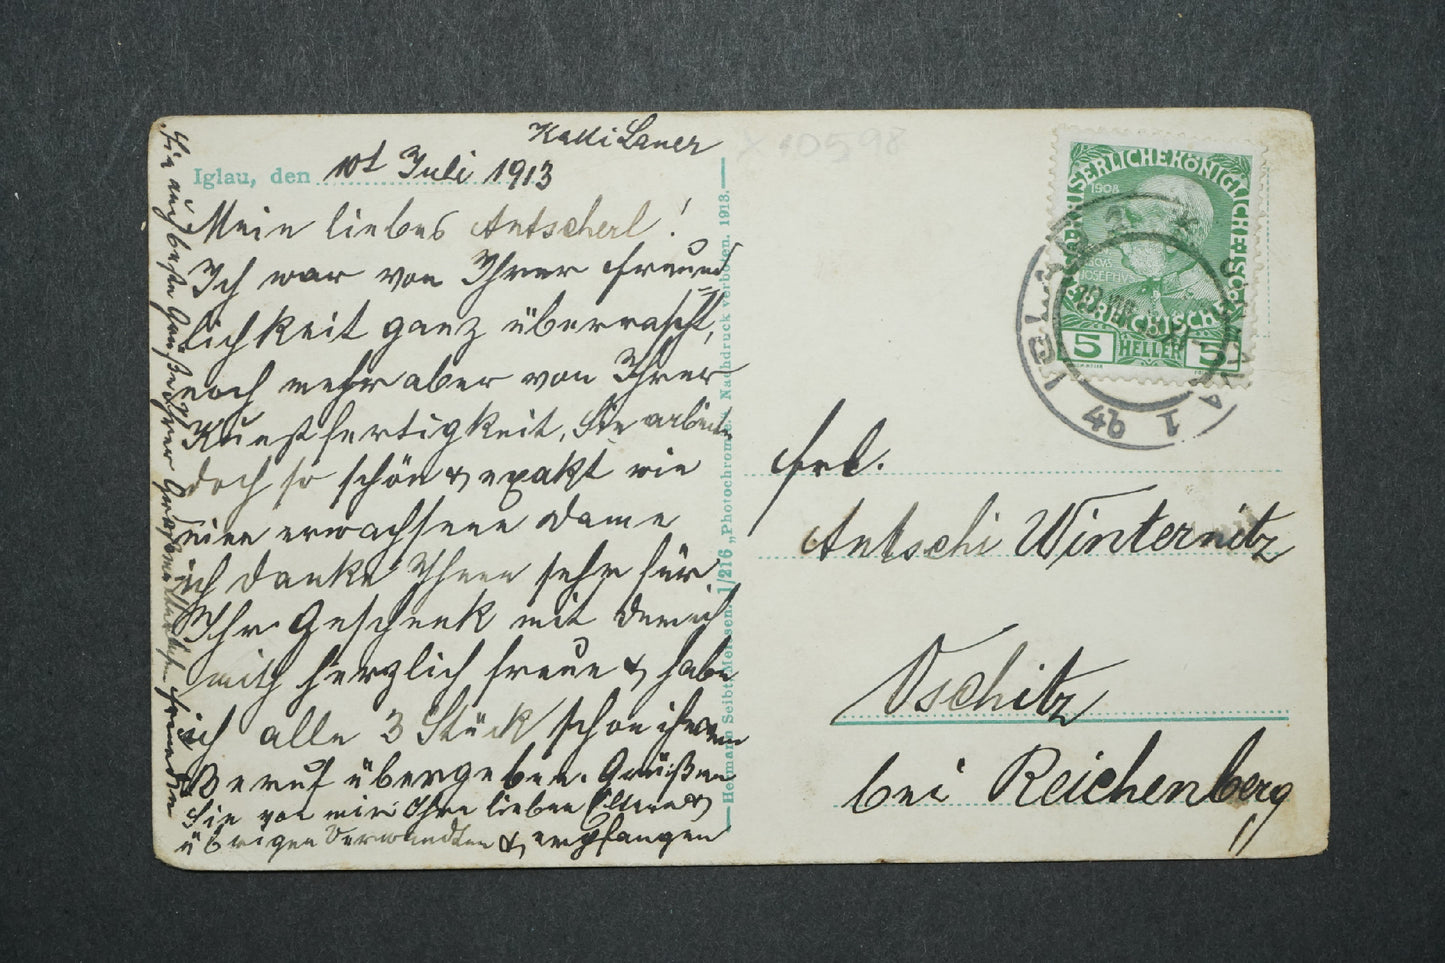 Kathi Lauer
Iglau, den 10t Juli 1913
Mein liebes Antscherl!
Ich war von Ihrer Freund
lichkeit ganz überrascht,
noch mehr aber von Ihrer
Kunstfertigkeit, Sie arbeiten
doch so schön & exakt wie
eine erwachsene Dame
ich danke Ihnen sehr für
Ihr Geschenk mit dem ich
mich herzlich freue & habe
ich alle 3 Stück schon ihrem
Beruf übergeben. Grüßen
Sie von mir Ihre lieben Eltern &
übrigen Verwandten & empfangen
Sie auch beste Grüße Ihrer
Hermann Seibt, Meissen. 1/216 „Photochromie." Nachdruck verboten. 1913.
X 10598
KAISERLICHE KÖNIGLICHE
1908
JOSEPHUS
5 HELLER 5
IGLAU 2
JIHLAVA 1
4b
Frl.
Antschi Winternitz
Oschitz
bei Reichenberg